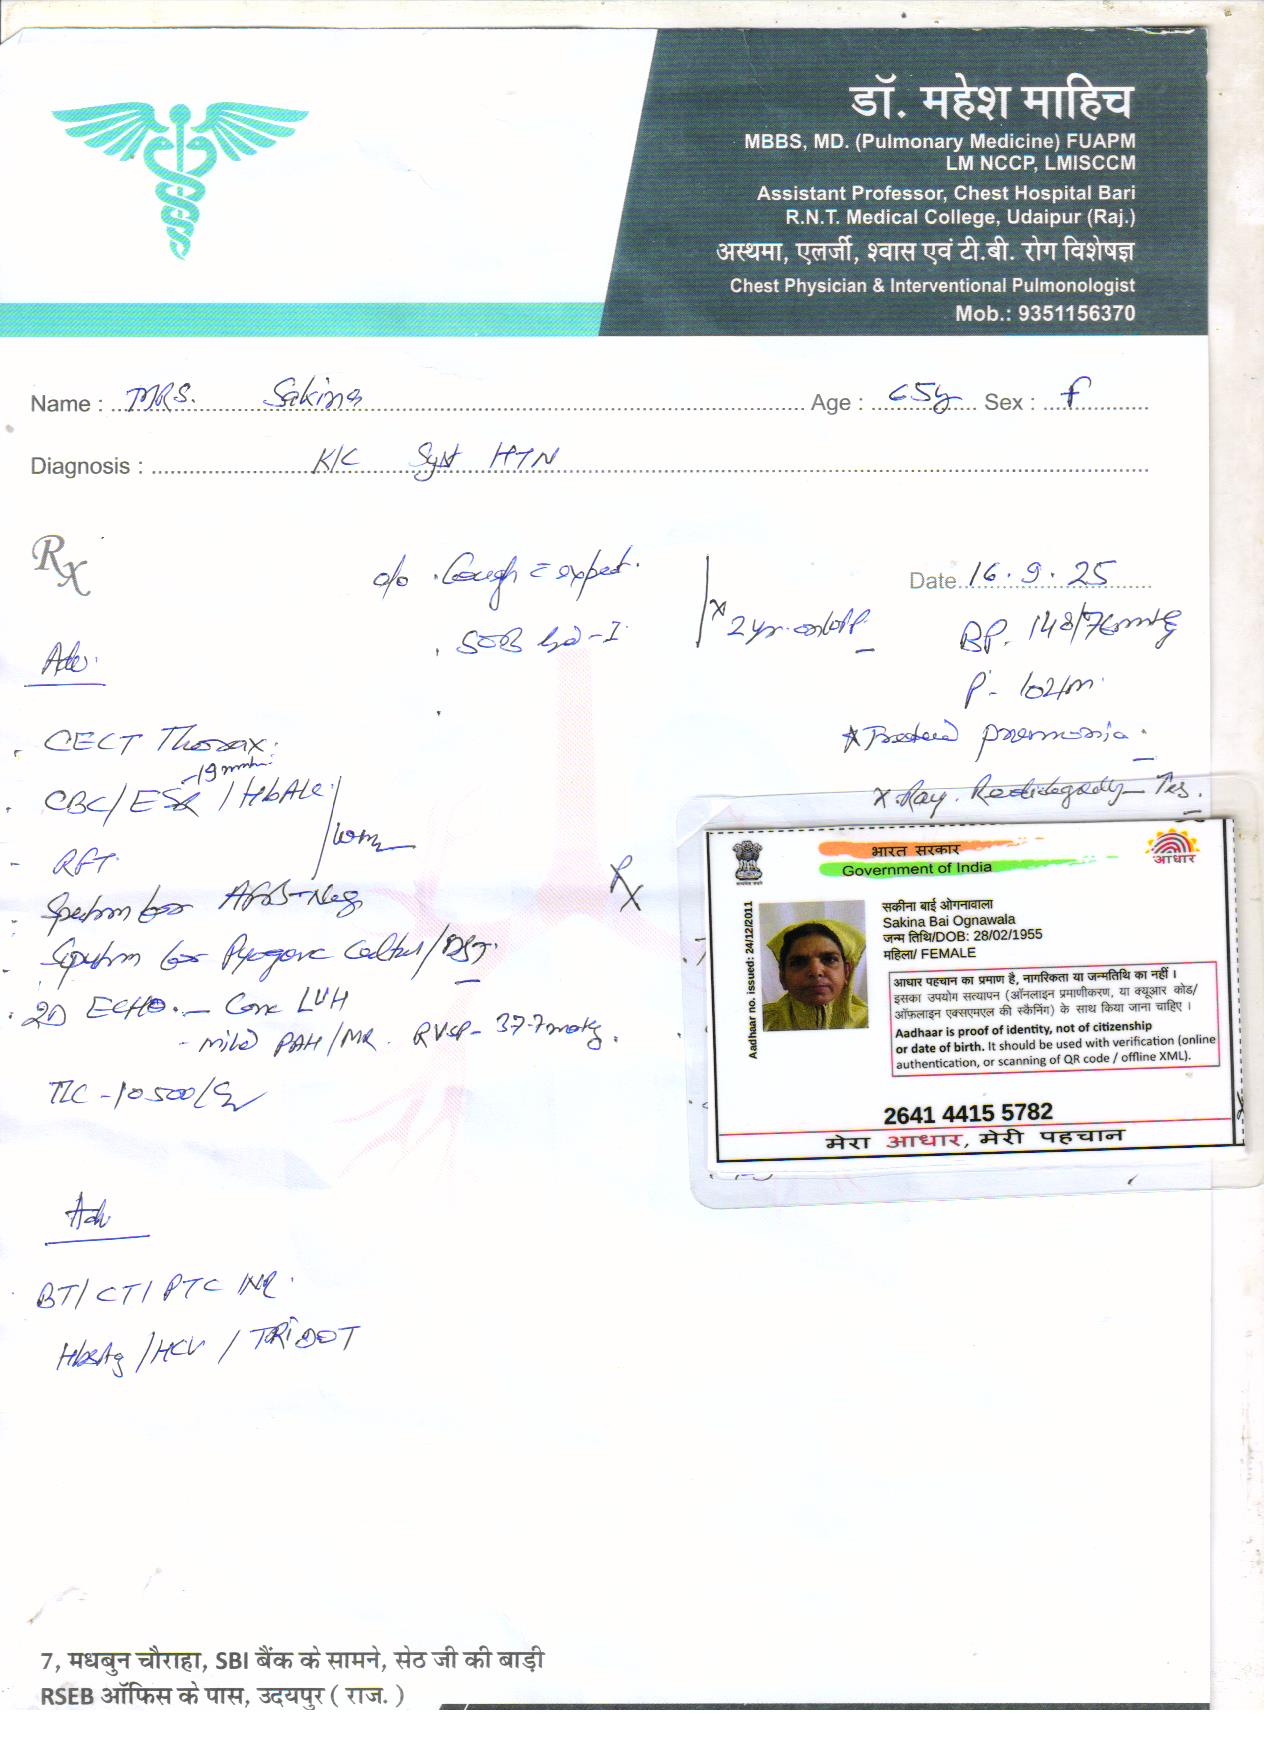 डॉ. महेश माहिच
MBBS, MD. (Pulmonary Medicine) FUAPM
LM NCCP, LMISCCM
Assistant Professor, Chest Hospital Bari
R.N.T. Medical College, Udaipur (Raj.)
अस्थमा, एलर्जी, श्वास एवं टी.बी. रोग विशेषज्ञ
Chest Physician & Interventional Pulmonologist
Mob.: 9351156370
Name : MRS. Sakina Age : 65y Sex : F
Diagnosis : K/C Syst HTN
Rx
c/o . Cough = expect.
Date 16.9.25
. SOB Gd-I
x 2yr. on/off
BP. 148/76mmHg
P- 102/m
Adv.
CECT Thorax
* Treated pneumonia
-19 mm
CBC/ESR/HbA1c
X-Ray.
- RFT.
Rx
Sputum for AFB-Neg
- Sputum for Pyogenic Culture/DST.
. 2D ECHO. - Conc LVH
- mild PAH/MR. RVSP- 37.7mmHg.
TLC -10500/
Adv.
BT/CT/PTC INR.
HbsAg/HCV/TRIDOT
भारत सरकार
Government of India
आधार
Aadhaar no. issued: 24/12/2011
सकीना बाई ओगनावाला
Sakina Bai Ognawala
जन्म तिथि/DOB: 28/02/1955
महिला/ FEMALE
आधार पहचान का प्रमाण है, नागरिकता या जन्मतिथि का नहीं ।
इसका उपयोग सत्यापन (ऑनलाइन प्रमाणीकरण, या क्यूआर कोड/
ऑफलाइन एक्सएमएल की स्कैनिंग) के साथ किया जाना चाहिए ।
Aadhaar is proof of identity, not of citizenship
or date of birth. It should be used with verification (online
authentication, or scanning of QR code / offline XML).
2641 4415 5782
मेरा आधार, मेरी पहचान
7, मधबुन चौराहा, SBI बैंक के सामने, सेठ जी की बाड़ी
RSEB ऑफिस के पास, उदयपुर ( राज. )